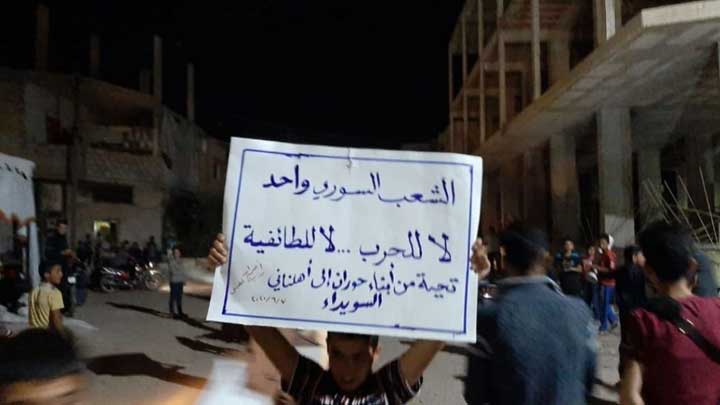 الشعب السوري واحد
لا للحرب ... لا للطائفية
تحية من أبناء حوران إلى أهلنا في
السويداء